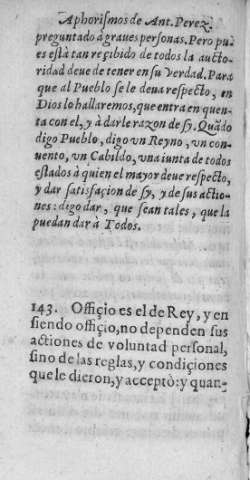 Aphorismos de Ant. Perez,
preguntado à graues personas. Pero pu-
es està tan reçibido de todos la aucto-
ridad deue de tener en su verdad. Para
que al Pueblo se le deua respecto, en
Dios lo hallaremos, que entra en quen-
ta con el, y à darle razon de sy. Quãdo
digo Pueblo, digo vn Reyno, vn con-
uento, vn Cabildo, vna iunta de todos
estados à quien el mayor deue respecto,
y dar satisfaçion de sy, y de sus action-
es: digo dar, que sean tales, que la
puedan dar à Todos.
143. Offiçio es el de Rey, y en
siendo offiçio, no dependen sus
actiones de voluntad personal,
sino de las reglas, y condiçiones
que le dieron, y acceptò: y quan-